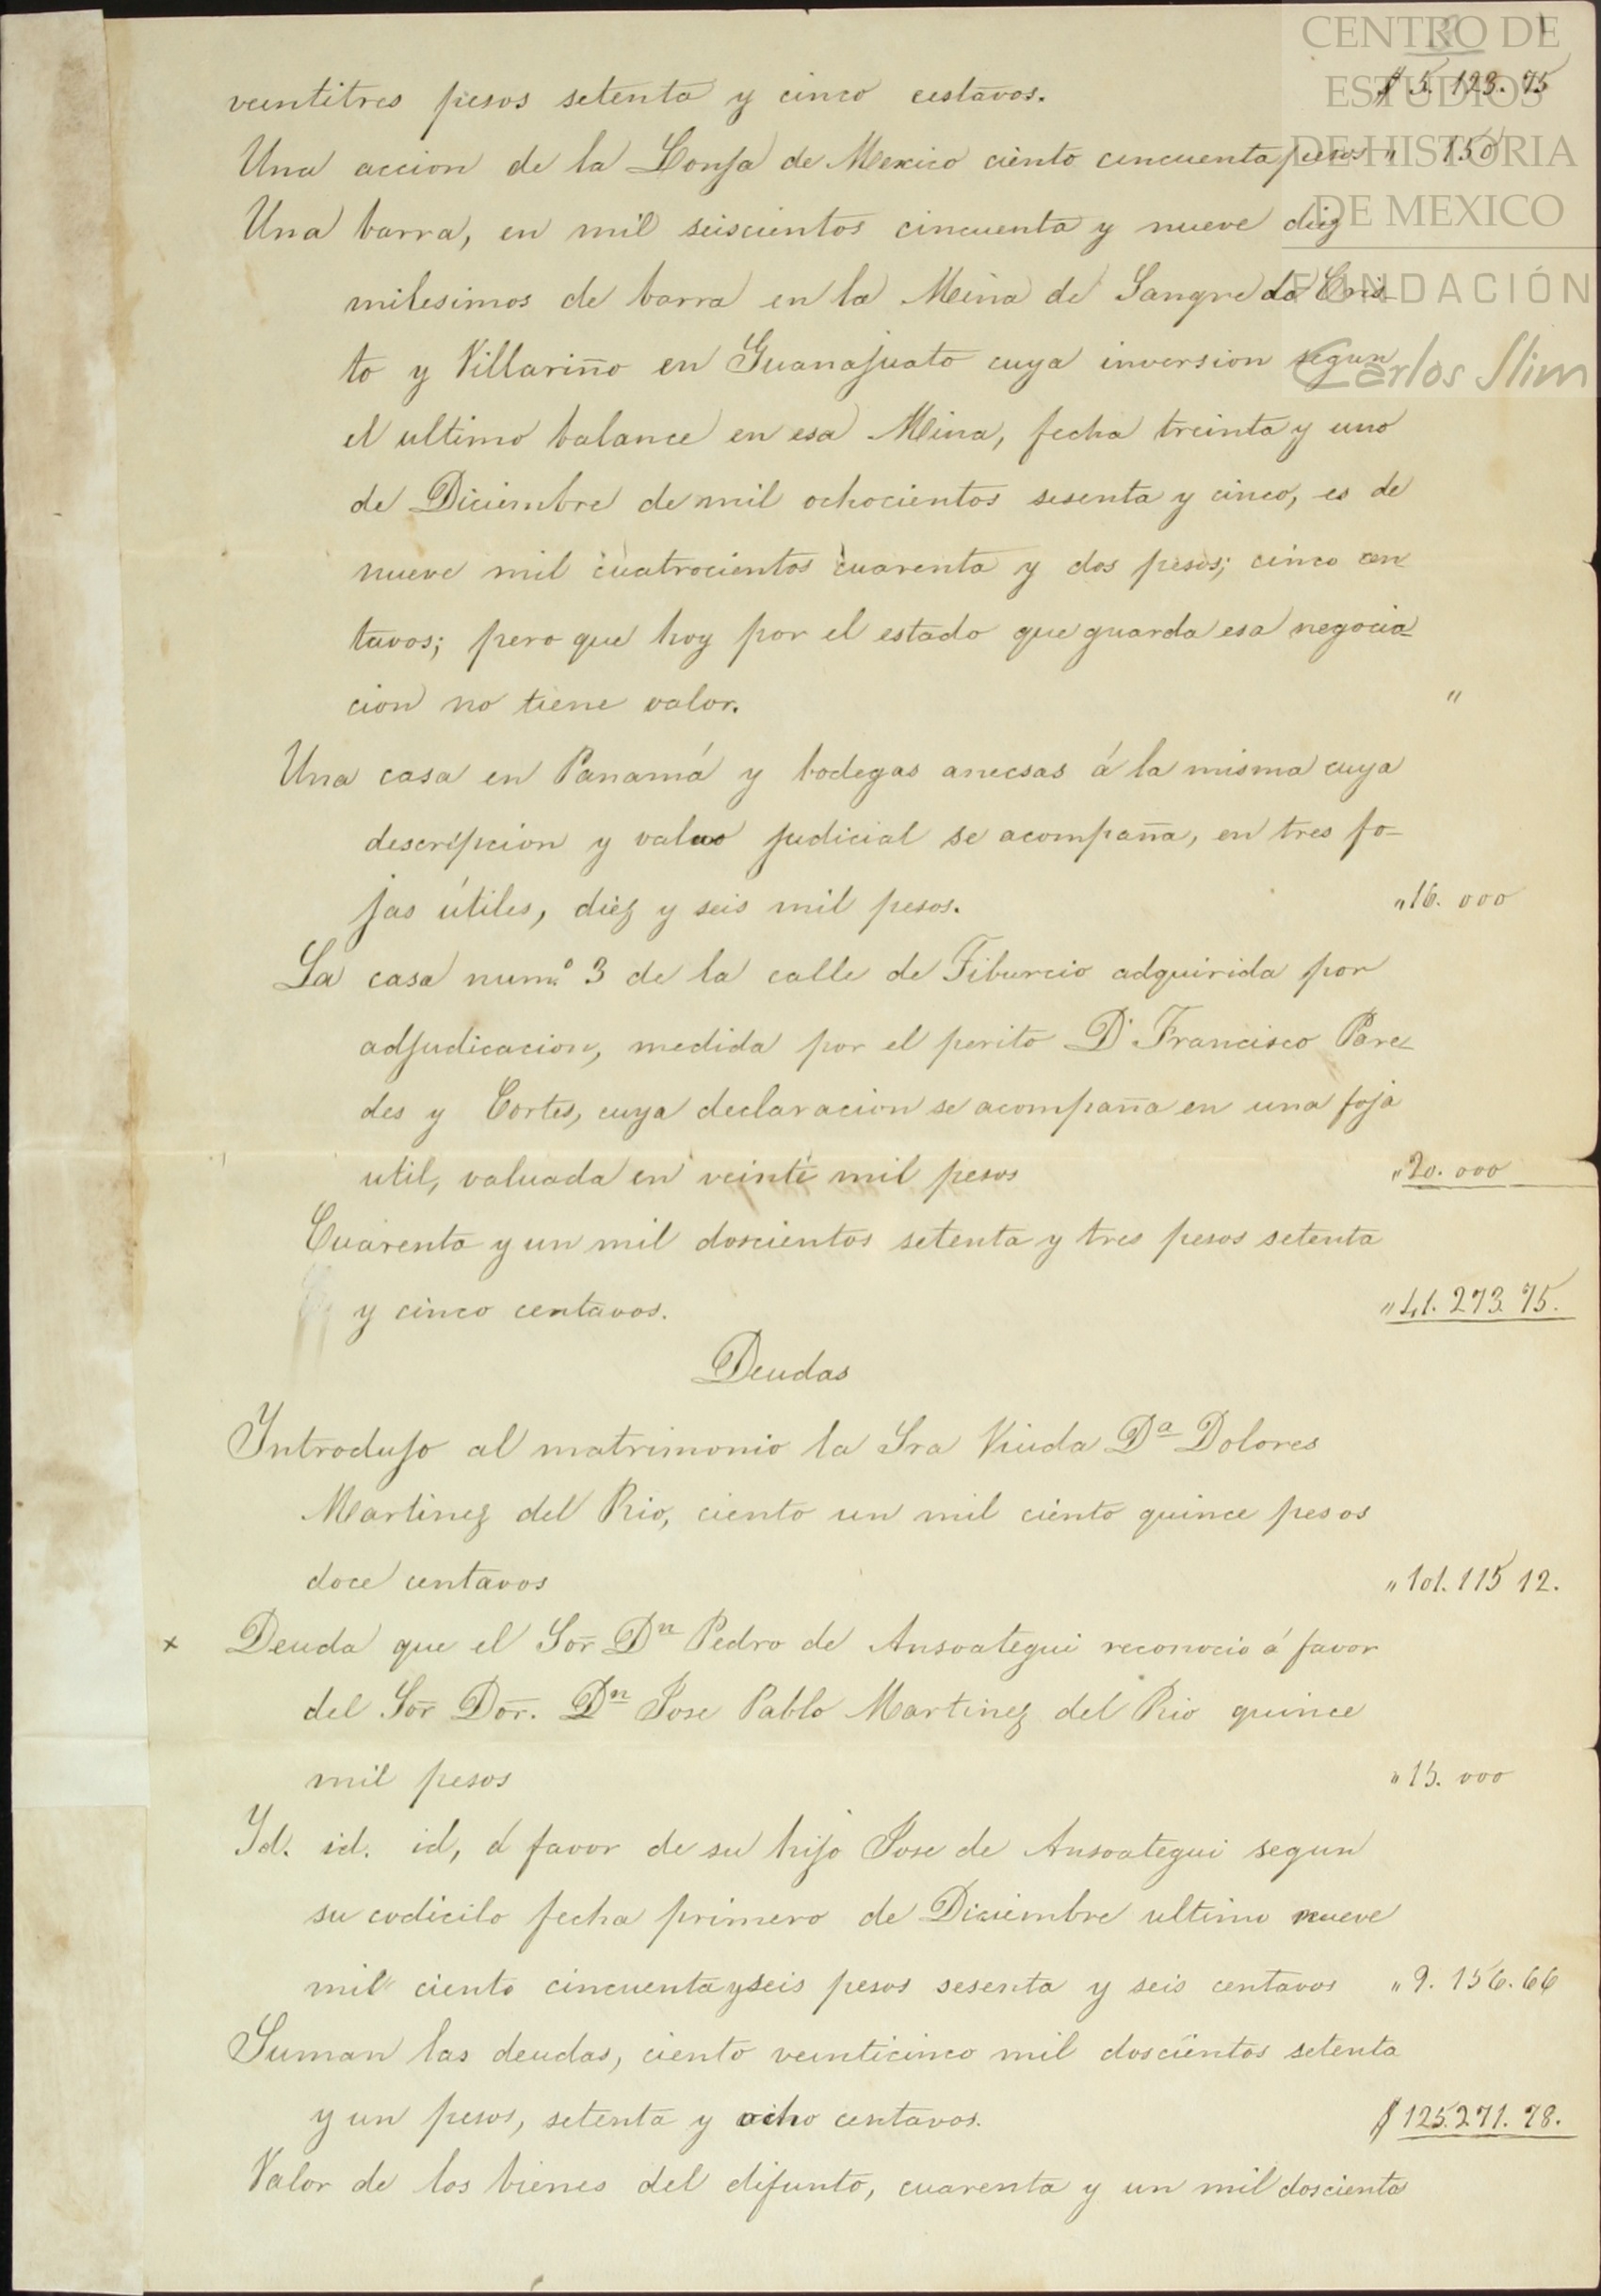 CENTRO DE
ESTUDIOS
DE HISTORIA
DE MEXICO
FUNDACIÓN
Carlos Slim
veintitres pesos setenta y cinco cestavos. $ 5.123.75
Una accion de la Lonja de Mexico ciento cincuenta pesos " 150
Una barra, en mil seiscientos cincuenta y nueve diez
milesimos de barra en la Mina de Sangre de Cris-
to y Villariño en Guanajuato cuya inversion segun
el ultimo balance en esa Mina, fecha treinta y uno
de Diciembre de mil ochocientos sesenta y cinco, es de
nueve mil cuatrocientos cuarenta y dos pesos; cinco cen
tavos; pero que hoy por el estado que guarda esa negocia-
cion no tiene valor. "
Una casa en Panamá y bodegas anecsas á la misma cuya
descripcion y valuo judicial se acompaña, en tres fo-
jas útiles, diez y seis mil pesos. "16.000
La casa num.º 3 de la calle de Tiburcio adquirida por
adjudicacion, medida por el perito D. Francisco Pare-
des y Cortes, cuya declaracion se acompaña en una foja
util, valuada en veinte mil pesos "20.000
Cuarenta y un mil doscientos setenta y tres pesos setenta
y cinco centavos. "41.273.75.
Deudas
Introdujo al matrimonio la Sra Viuda Dª Dolores
Martinez del Rio, ciento un mil ciento quince pesos
doce centavos "101.115 12.
x Deuda que el Sor Dn Pedro de Ansoategui reconocio á favor
del Sor Dor. Dn Jose Pablo Martinez del Rio quince
mil pesos "15.000
Id. id. id, á favor de su hijo Jose de Ansoategui segun
su codicilo fecha primero de Diciembre ultimo nueve
mil ciento cincuenta y seis pesos sesenta y seis centavos "9.156.66
Suman las deudas, ciento veinticinco mil doscientos setenta
y un pesos, setenta y ocho centavos. $ 125.271.78.
Valor de los bienes del difunto, cuarenta y un mil doscientos